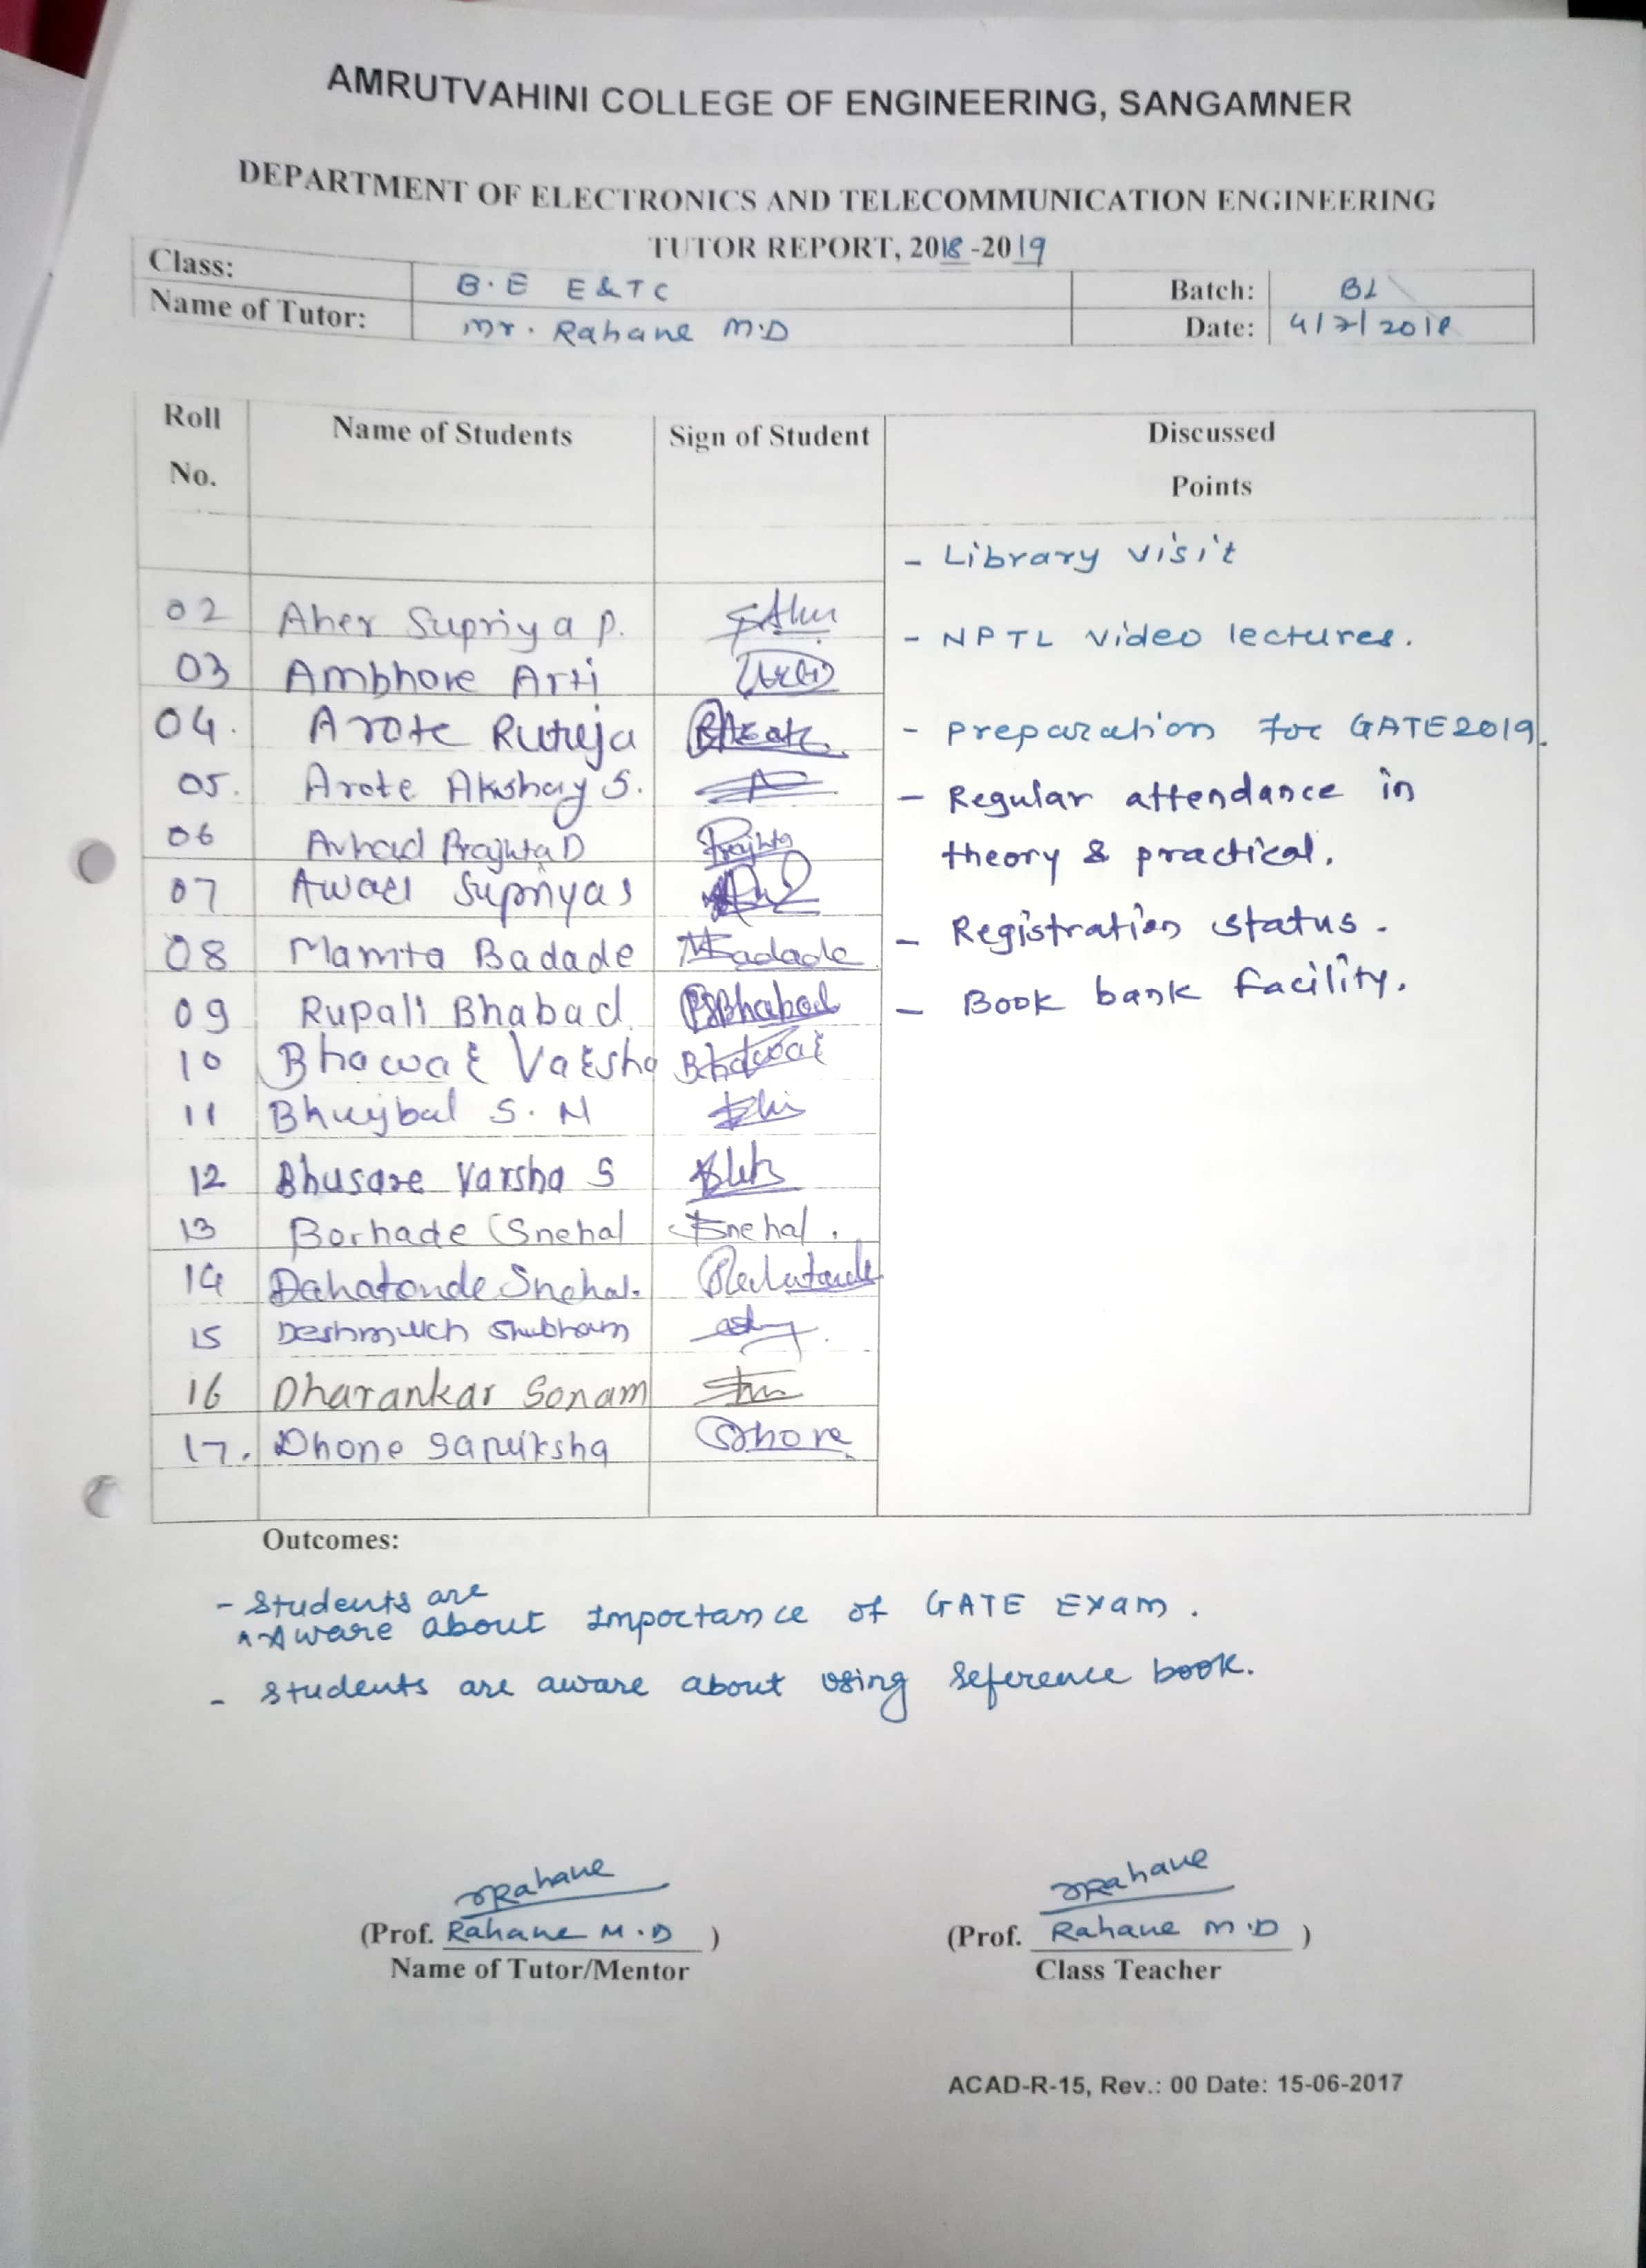 AMRUTVAHINI COLLEGE OF ENGINEERING, SANGAMNER
DEPARTMENT OF ELECTRONICS AND TELECOMMUNICATION ENGINEERING
TUTOR REPORT, 2018-2019
Class: B.E E&TC Batch:
Name of Tutor: Mr. Rahane M.D Date: 4/7/2018
Roll No. Name of Students Sign of Student Discussed Points
- Library visit
02 Aher Supriya P.
- NPTL video lectures.
03 Ambhore Arti
04. Arote Rutuja
- preparation for GATE2019.
05. Arote Akshay S.
- Regular attendance in
06 Avhad Prajkta D Prajkta
theory & practical.
07 Awad Supriya S
- Registration status.
08 Mamta Badade Badade
- Book bank facility.
09 Rupali Bhabad Bhabad
10 Bhawar Varsha Bhawar
11 Bhujbal S. N
12 Bhusare Varsha S
13 Borhade Snehal Snehal.
14 Dahatonde Snehal.
15 Deshmukh Shubham
16 Dharankar Sonam
17. Dhone Samiksha
Outcomes:
- Students are
Aware about Importance of GATE Exam.
- Students are aware about using reference book.
Rahane Rahane
(Prof. Rahane M.D ) (Prof. Rahane M.D )
Name of Tutor/Mentor Class Teacher
ACAD-R-15, Rev.: 00 Date: 15-06-2017